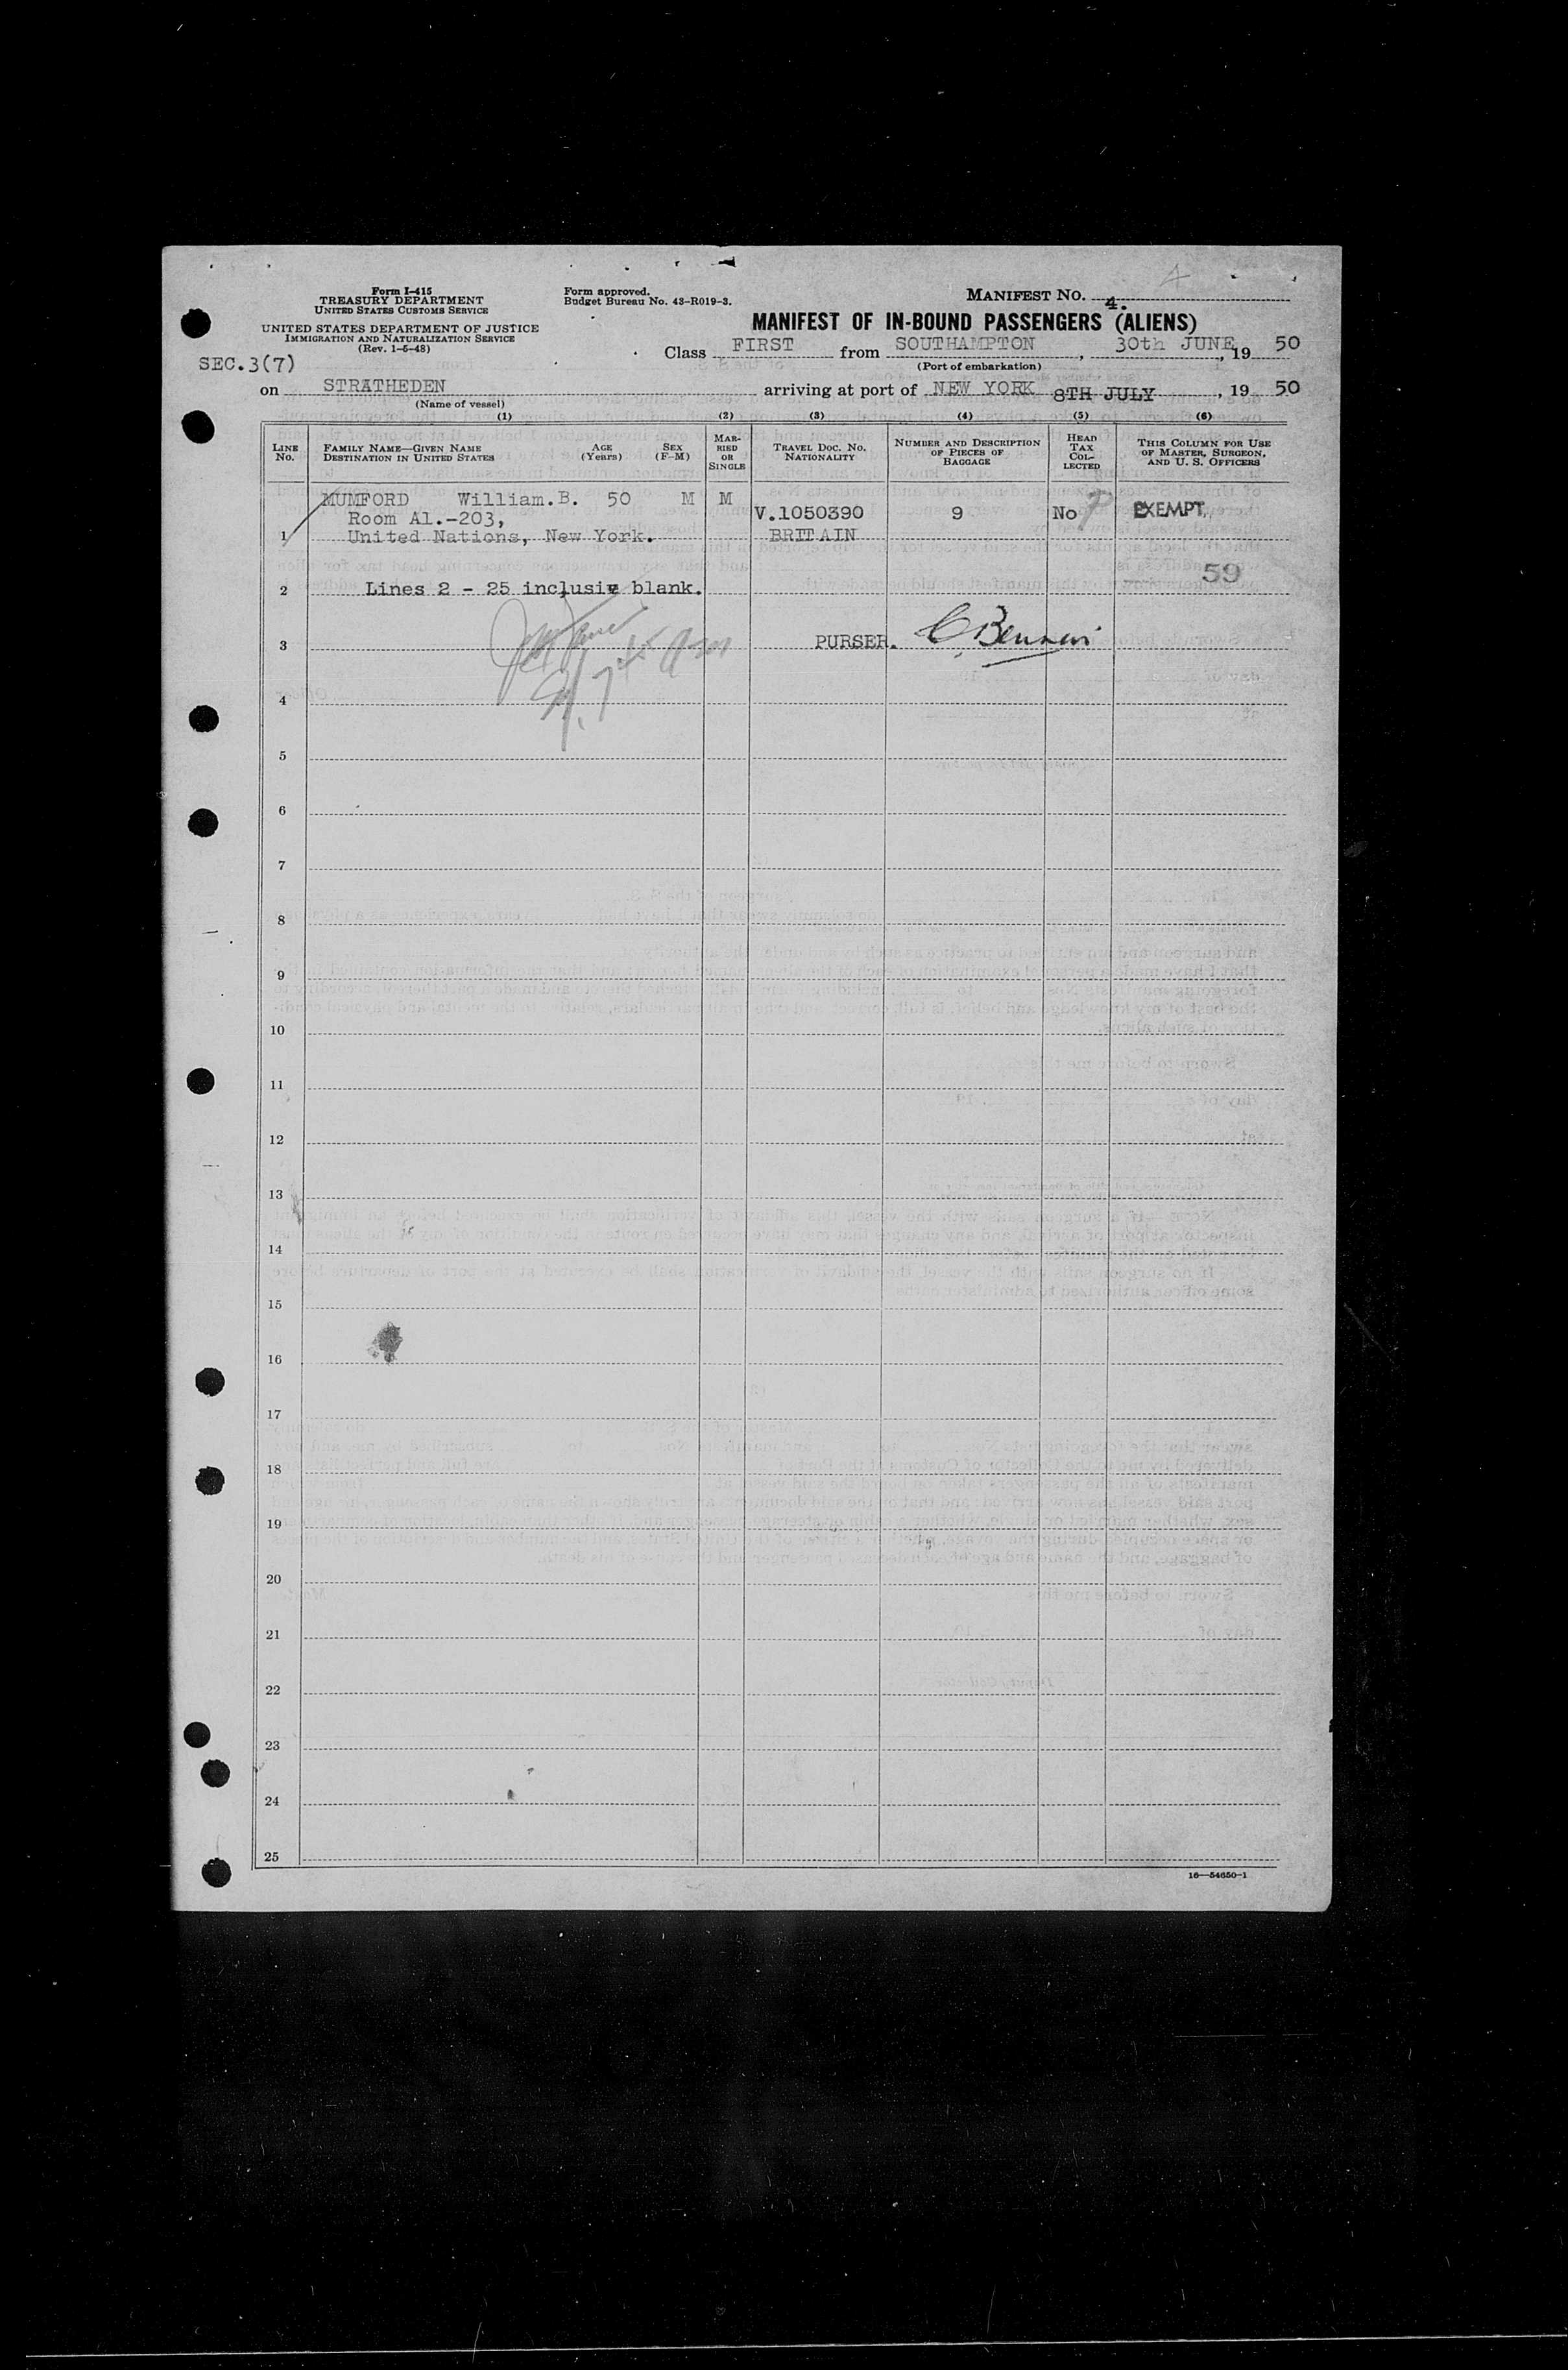 4
Form I-415
TREASURY DEPARTMENT
UNITED STATES CUSTOMS SERVICE
UNITED STATES DEPARTMENT OF JUSTICE
IMMIGRATION AND NATURALIZATION SERVICE
(Rev. 1-6-48)
Form approved.
Budget Bureau No. 43-R019-3.
MANIFEST NO. 4.
MANIFEST OF IN-BOUND PASSENGERS (ALIENS)
SEC.3(7)
Class FIRST from SOUTHAMPTON, 30th JUNE, 19 50
(Port of embarkation)
on STRATHEDEN arriving at port of NEW YORK 8TH JULY, 19 50
(Name of vessel)
(1) (2) (3) (4) (5) (6)
LINE No. FAMILY NAME—GIVEN NAME DESTINATION IN UNITED STATES AGE (Years) SEX (F-M) MARRIED OR SINGLE TRAVEL DOC. NO. NATIONALITY NUMBER AND DESCRIPTION OF PIECES OF BAGGAGE HEAD TAX COLLECTED THIS COLUMN FOR USE OF MASTER, SURGEON, AND U. S. OFFICERS
MUMFORD William.B. 50 M M
Room A1.-203, V.1050390 9 No EXEMPT.
1 United Nations, New York. BRITAIN
59
2 Lines 2 - 25 inclusive blank.
3 PURSER.
4
5
6
7
8
9
10
11
12
13
14
15
16
17
18
19
20
21
22
23
24
25
16—54650-1